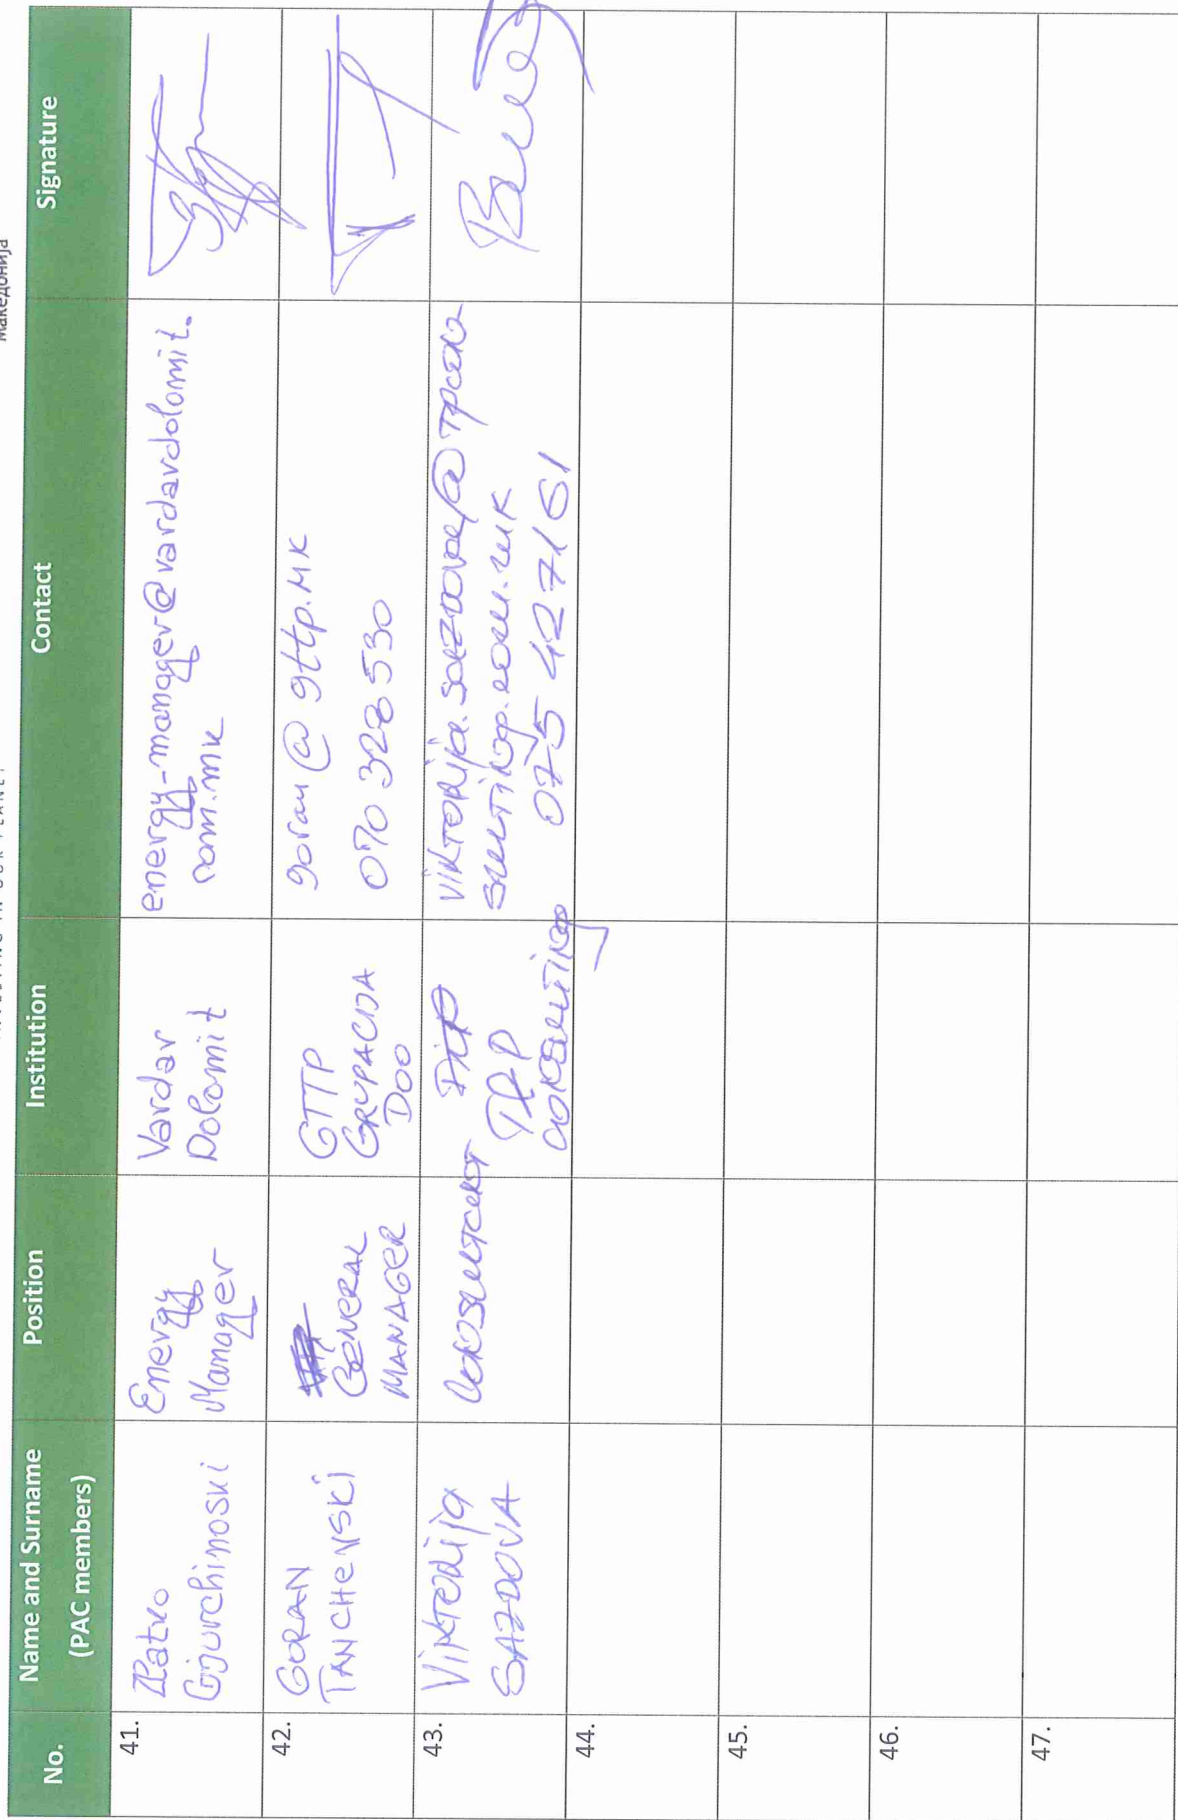 Македонија
INVESTING IN OUR PLANET
No.
Name and Surname
(PAC members)
Position
Institution
Contact
Signature
41.
Zlatko
Gjurchinoski
Energy
Manager
Vardar
Dolomit
energy-manager@vardardolomit.
com.mk
42.
GORAN
TANCHEVSKI
GENERAL
MANAGER
GTTP
GRUPACIJA
DOO
goran@gttp.MK
070 328 530
43.
Viktorija
SAZDOVA
TPP
075 427161
44.
45.
46.
47.